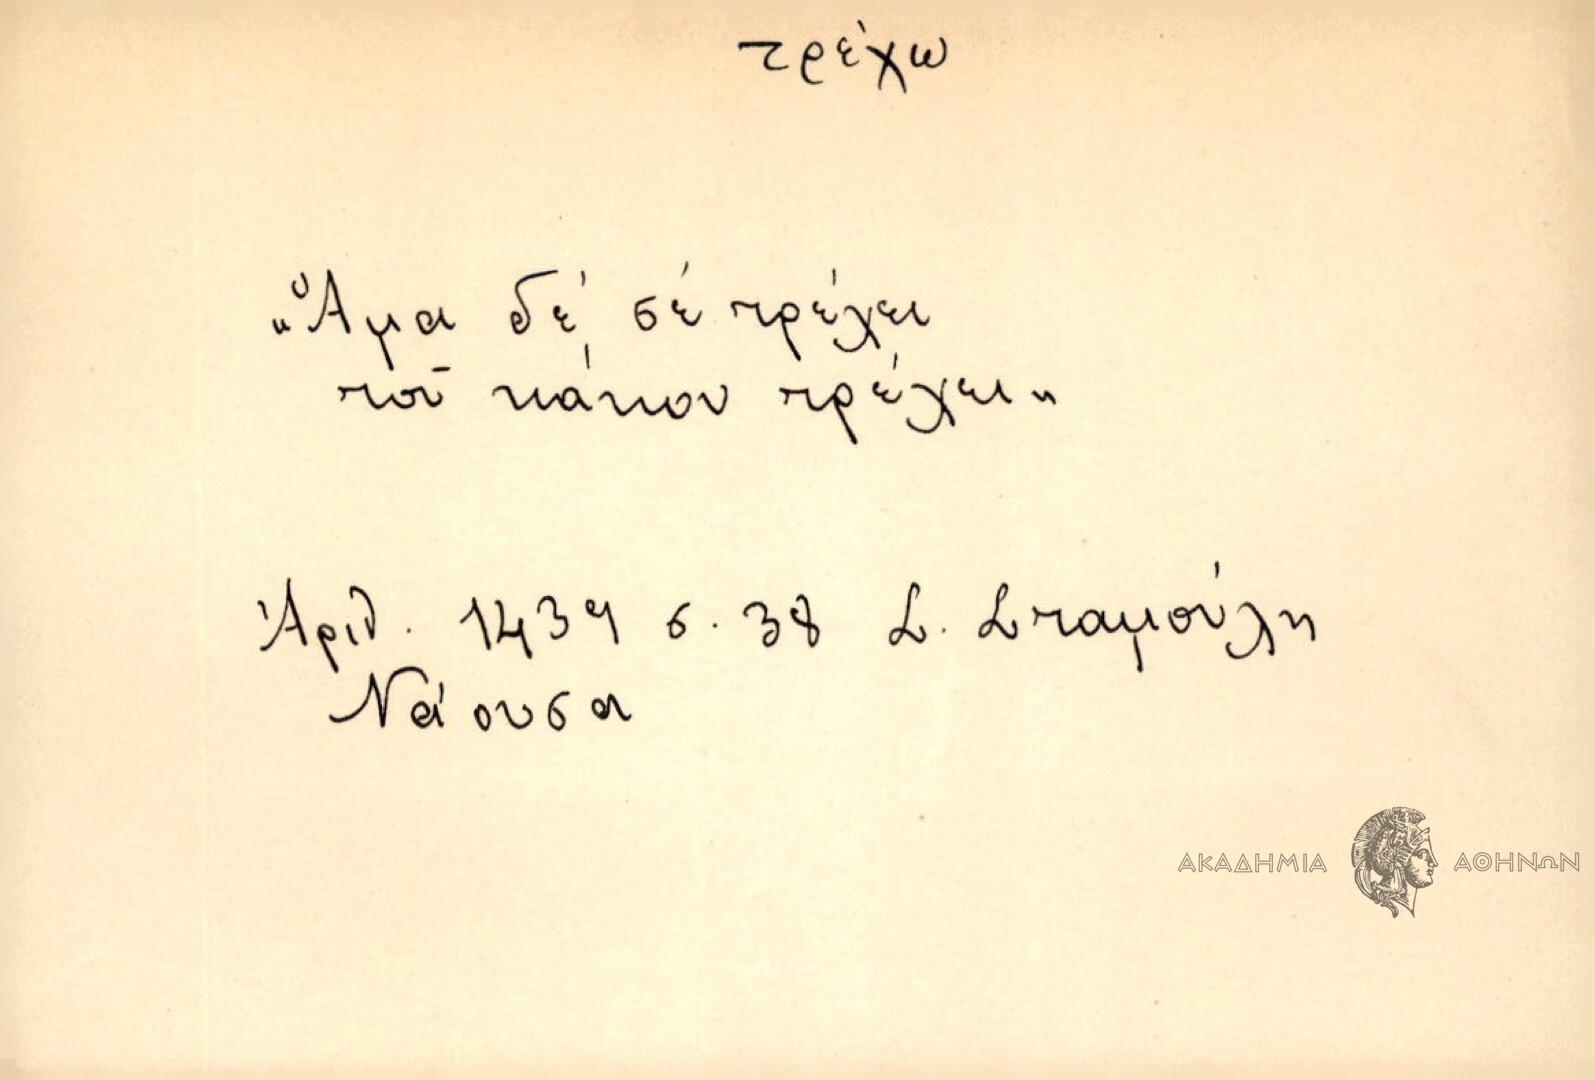 τρέχω
„Ἅμα δέ σέ τρέχει
τοῦ κάκου τρέχει„
Ἀριθ. 1439 σ. 38 Σ. Σταμούλη
Νάουσα
ΑΚΑΔΗΜΙΑ ΑΘΗΝΩΝ